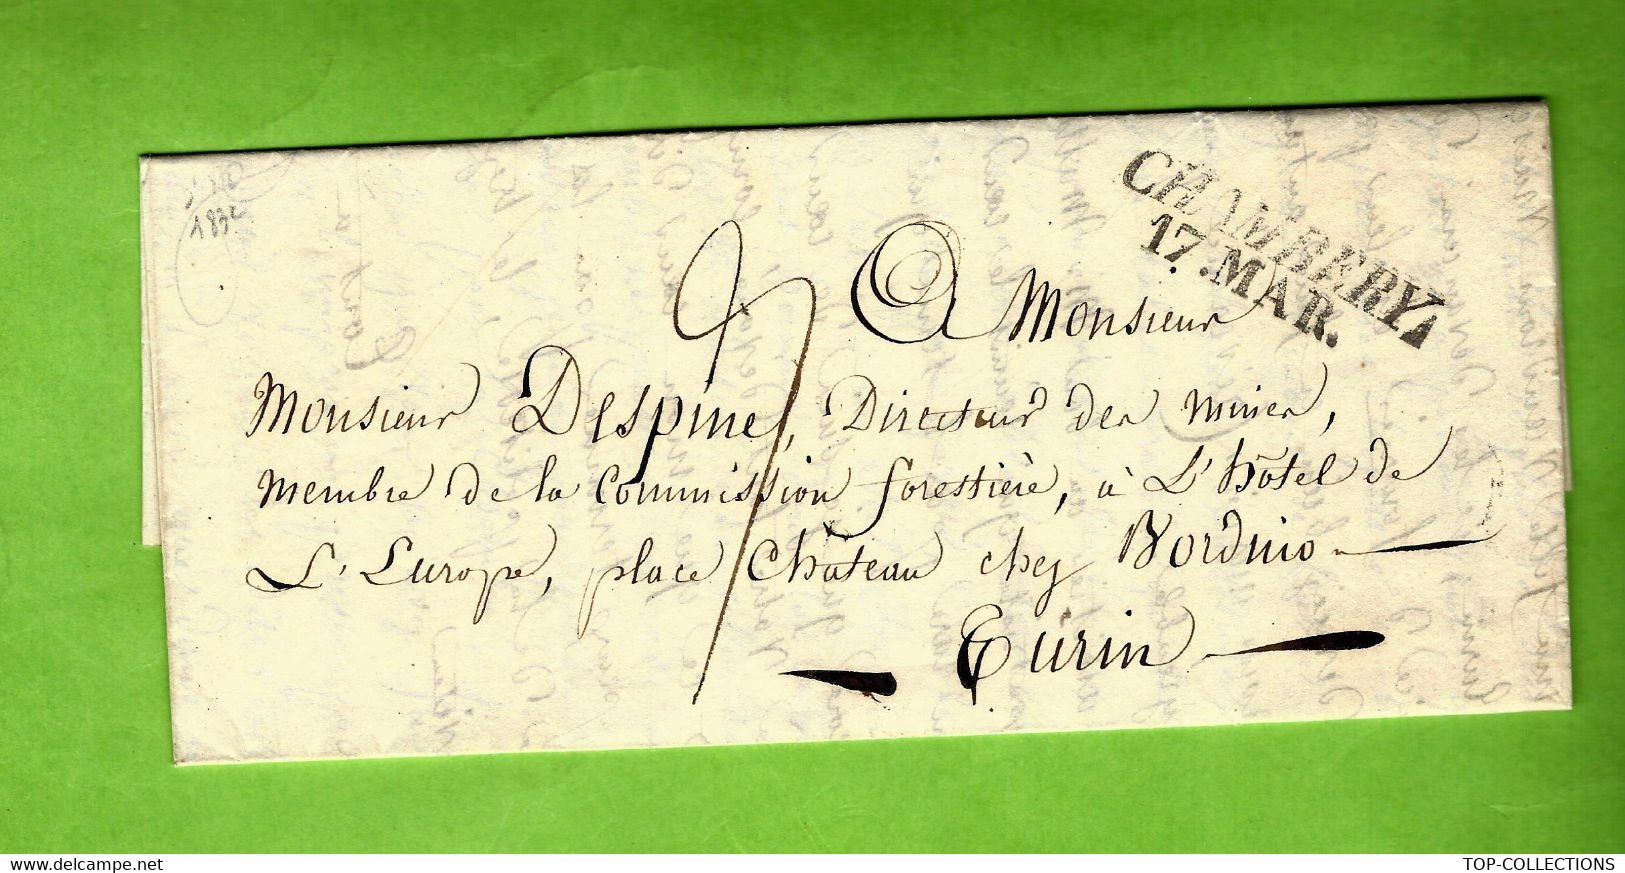 1832
CHAMBERY,
17. MAR.
A Monsieur
Monsieur Despine, Directeur des mines,
membre de la Commission forestière, à L'hôtel de
L'Europe, place Château chez Bordino
Turin
www.delcampe.net
TOP-COLLECTIONS